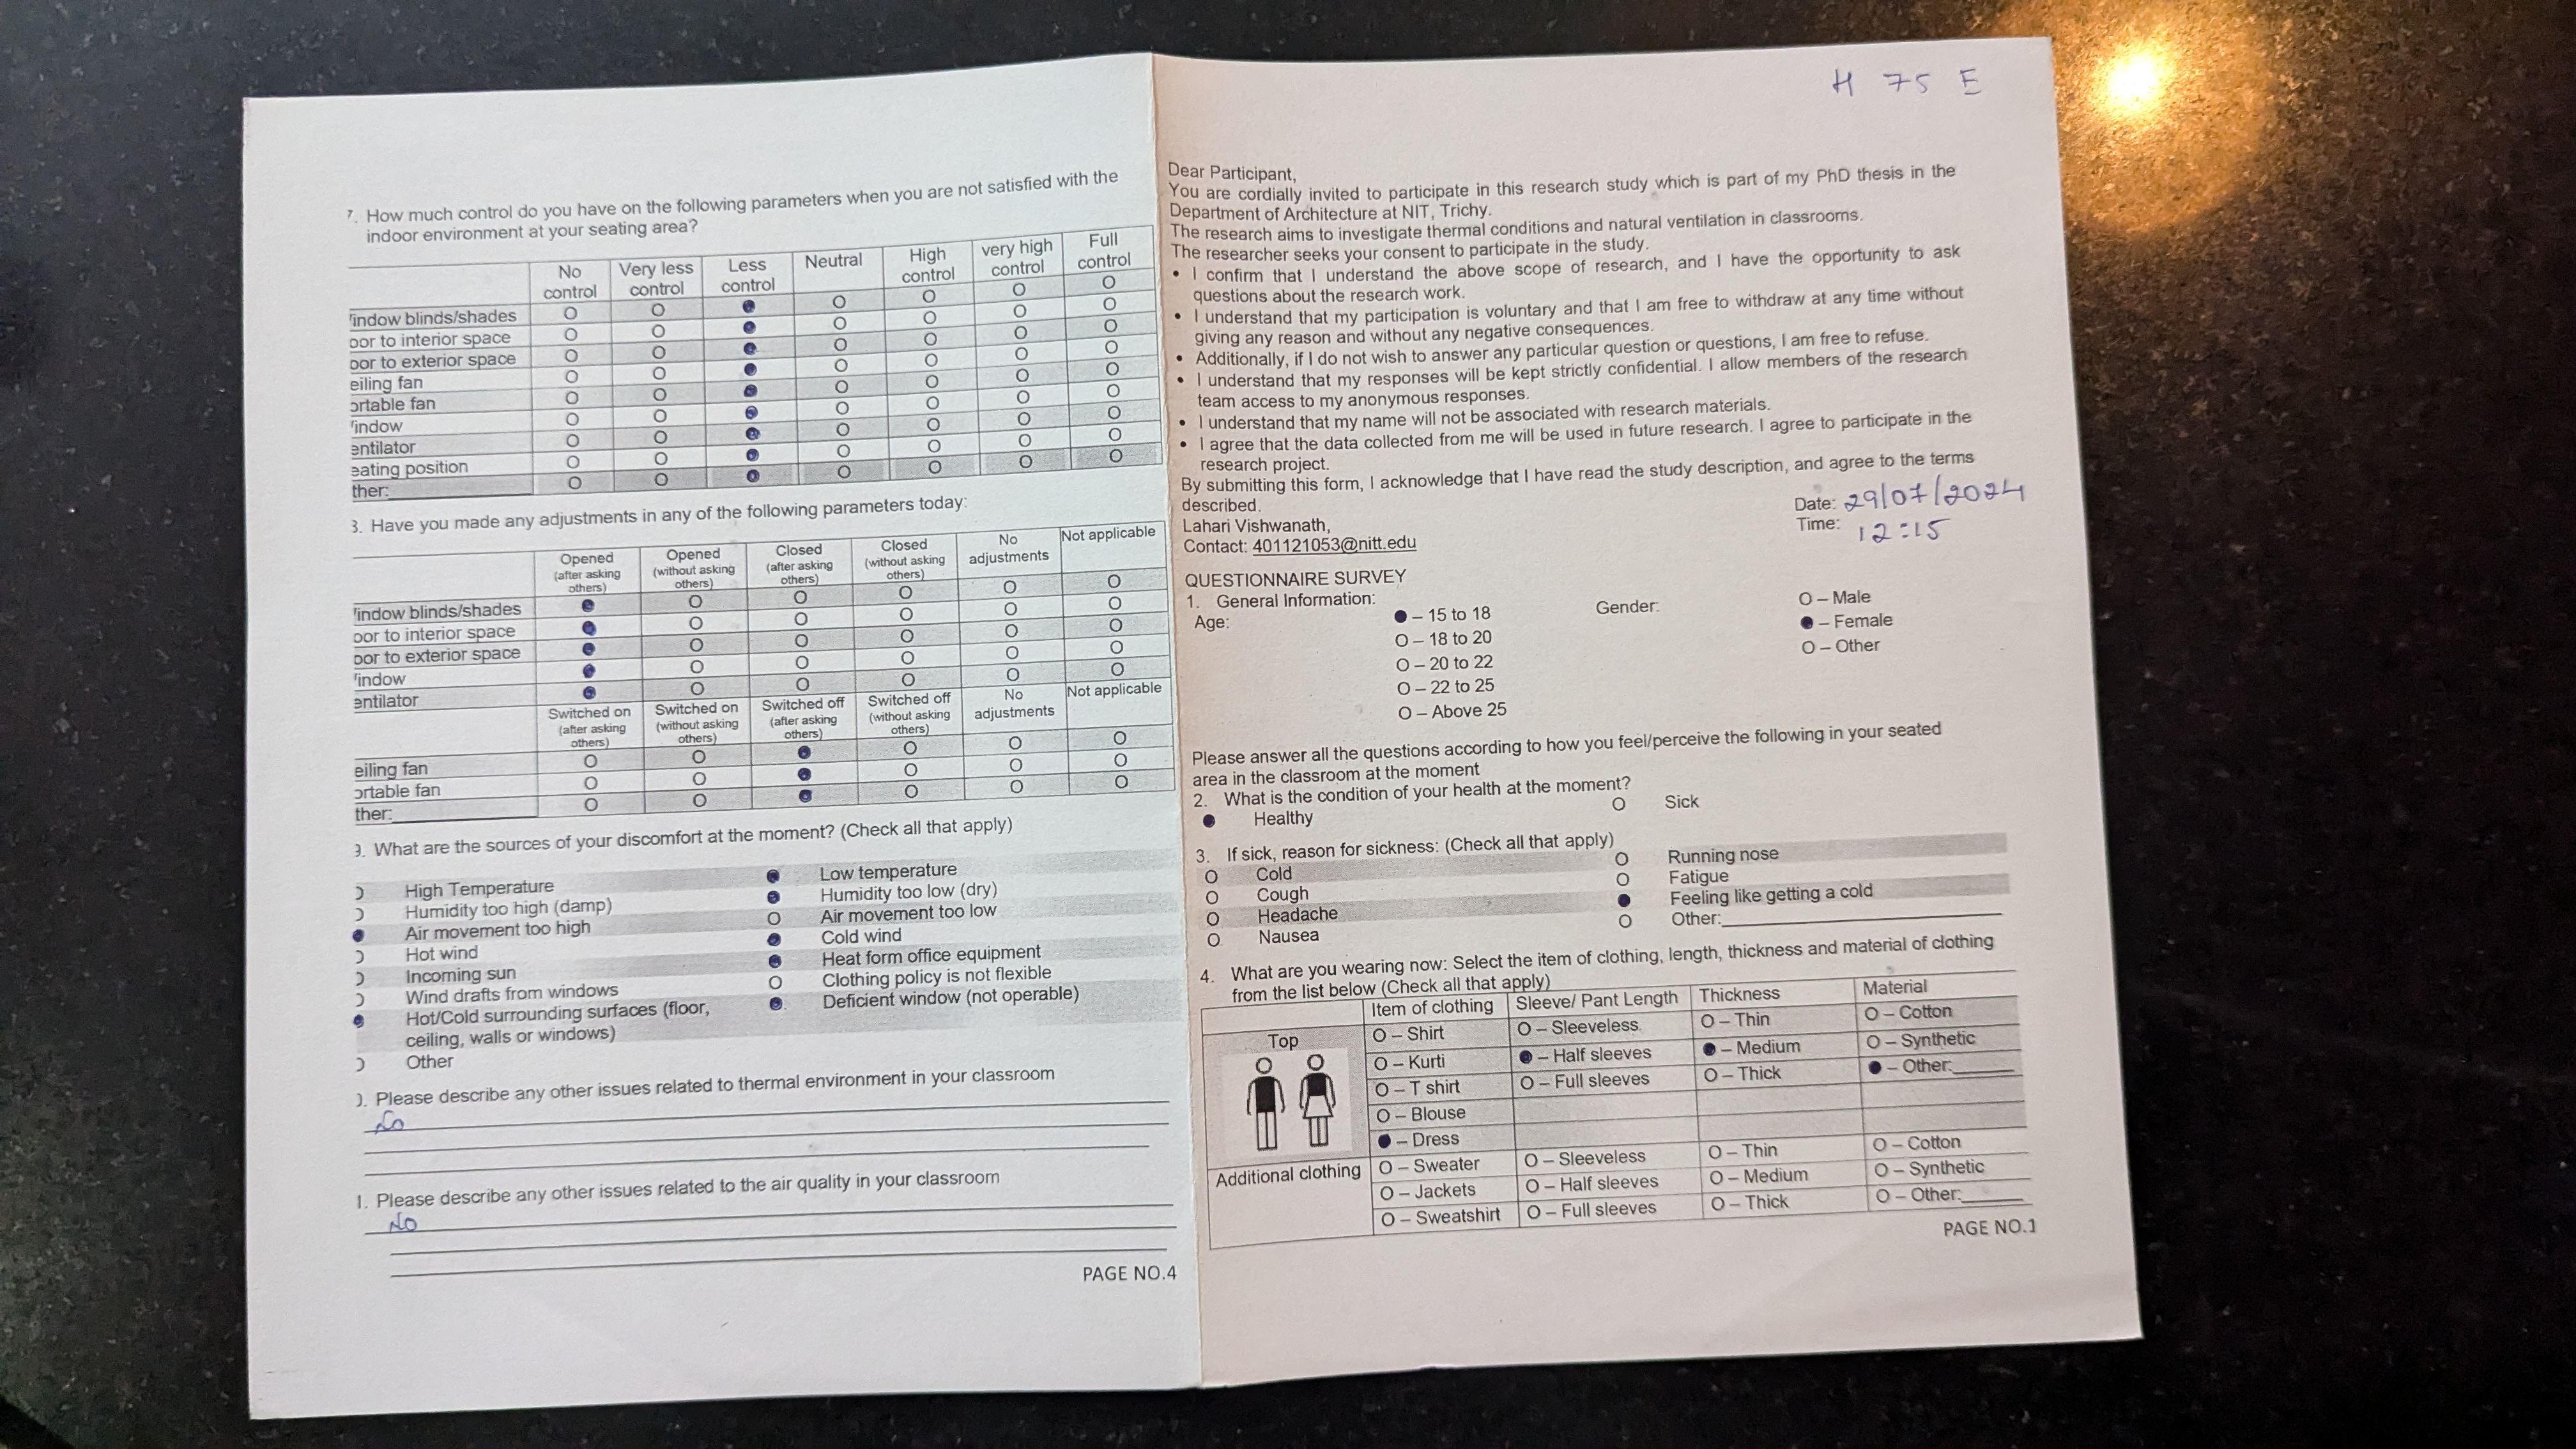 7. How much control do you have on the following parameters when you are not satisfied with the
indoor environment at your seating area?
No control Very less control Less control Neutral High control very high control Full control
indow blinds/shades O O ● O O O O
oor to interior space O O ● O O O O
oor to exterior space O O ● O O O O
eiling fan O O ● O O O O
ortable fan O O ● O O O O
indow O O ● O O O O
entilator O O ● O O O O
eating position O O ● O O O O
ther: O O ● O O O O
3. Have you made any adjustments in any of the following parameters today:
Opened (after asking others) Opened (without asking others) Closed (after asking others) Closed (without asking others) No adjustments Not applicable
indow blinds/shades ● O O O O O
oor to interior space ● O O O O O
oor to exterior space ● O O O O O
indow ● O O O O O
entilator ● O O O O O
Switched on (after asking others) Switched on (without asking others) Switched off (after asking others) Switched off (without asking others) No adjustments Not applicable
eiling fan O O ● O O O
ortable fan O O ● O O O
ther: O O ● O O O
9. What are the sources of your discomfort at the moment? (Check all that apply)
O High Temperature ● Low temperature
O Humidity too high (damp) ● Humidity too low (dry)
● Air movement too high O Air movement too low
O Hot wind ● Cold wind
O Incoming sun ● Heat form office equipment
O Wind drafts from windows O Clothing policy is not flexible
● Hot/Cold surrounding surfaces (floor, ● Deficient window (not operable)
ceiling, walls or windows)
O Other
). Please describe any other issues related to thermal environment in your classroom
No
1. Please describe any other issues related to the air quality in your classroom
No
PAGE NO.4
H 75 E
Dear Participant,
You are cordially invited to participate in this research study which is part of my PhD thesis in the
Department of Architecture at NIT, Trichy.
The research aims to investigate thermal conditions and natural ventilation in classrooms.
The researcher seeks your consent to participate in the study.
• I confirm that I understand the above scope of research, and I have the opportunity to ask
questions about the research work.
• I understand that my participation is voluntary and that I am free to withdraw at any time without
giving any reason and without any negative consequences.
• Additionally, if I do not wish to answer any particular question or questions, I am free to refuse.
• I understand that my responses will be kept strictly confidential. I allow members of the research
team access to my anonymous responses.
• I understand that my name will not be associated with research materials.
• I agree that the data collected from me will be used in future research. I agree to participate in the
research project.
By submitting this form, I acknowledge that I have read the study description, and agree to the terms
described.
Date: 29/07/2024
Lahari Vishwanath,
Time: 12:15
Contact: 401121053@nitt.edu
QUESTIONNAIRE SURVEY
1. General Information:
Age: ● – 15 to 18 Gender: O – Male
O – 18 to 20 ● – Female
O – 20 to 22 O – Other
O – 22 to 25
O – Above 25
Please answer all the questions according to how you feel/perceive the following in your seated
area in the classroom at the moment
2. What is the condition of your health at the moment?
● Healthy O Sick
3. If sick, reason for sickness: (Check all that apply)
O Cold O Running nose
O Cough O Fatigue
O Headache ● Feeling like getting a cold
O Nausea O Other:
4. What are you wearing now: Select the item of clothing, length, thickness and material of clothing
from the list below (Check all that apply)
Item of clothing Sleeve/ Pant Length Thickness Material
Top O – Shirt O – Sleeveless O – Thin O – Cotton
O – Kurti ● – Half sleeves ● – Medium O – Synthetic
O – T shirt O – Full sleeves O – Thick ● – Other:
O – Blouse
● – Dress
Additional clothing O – Sweater O – Sleeveless O – Thin O – Cotton
O – Jackets O – Half sleeves O – Medium O – Synthetic
O – Sweatshirt O – Full sleeves O – Thick O – Other:
PAGE NO.1